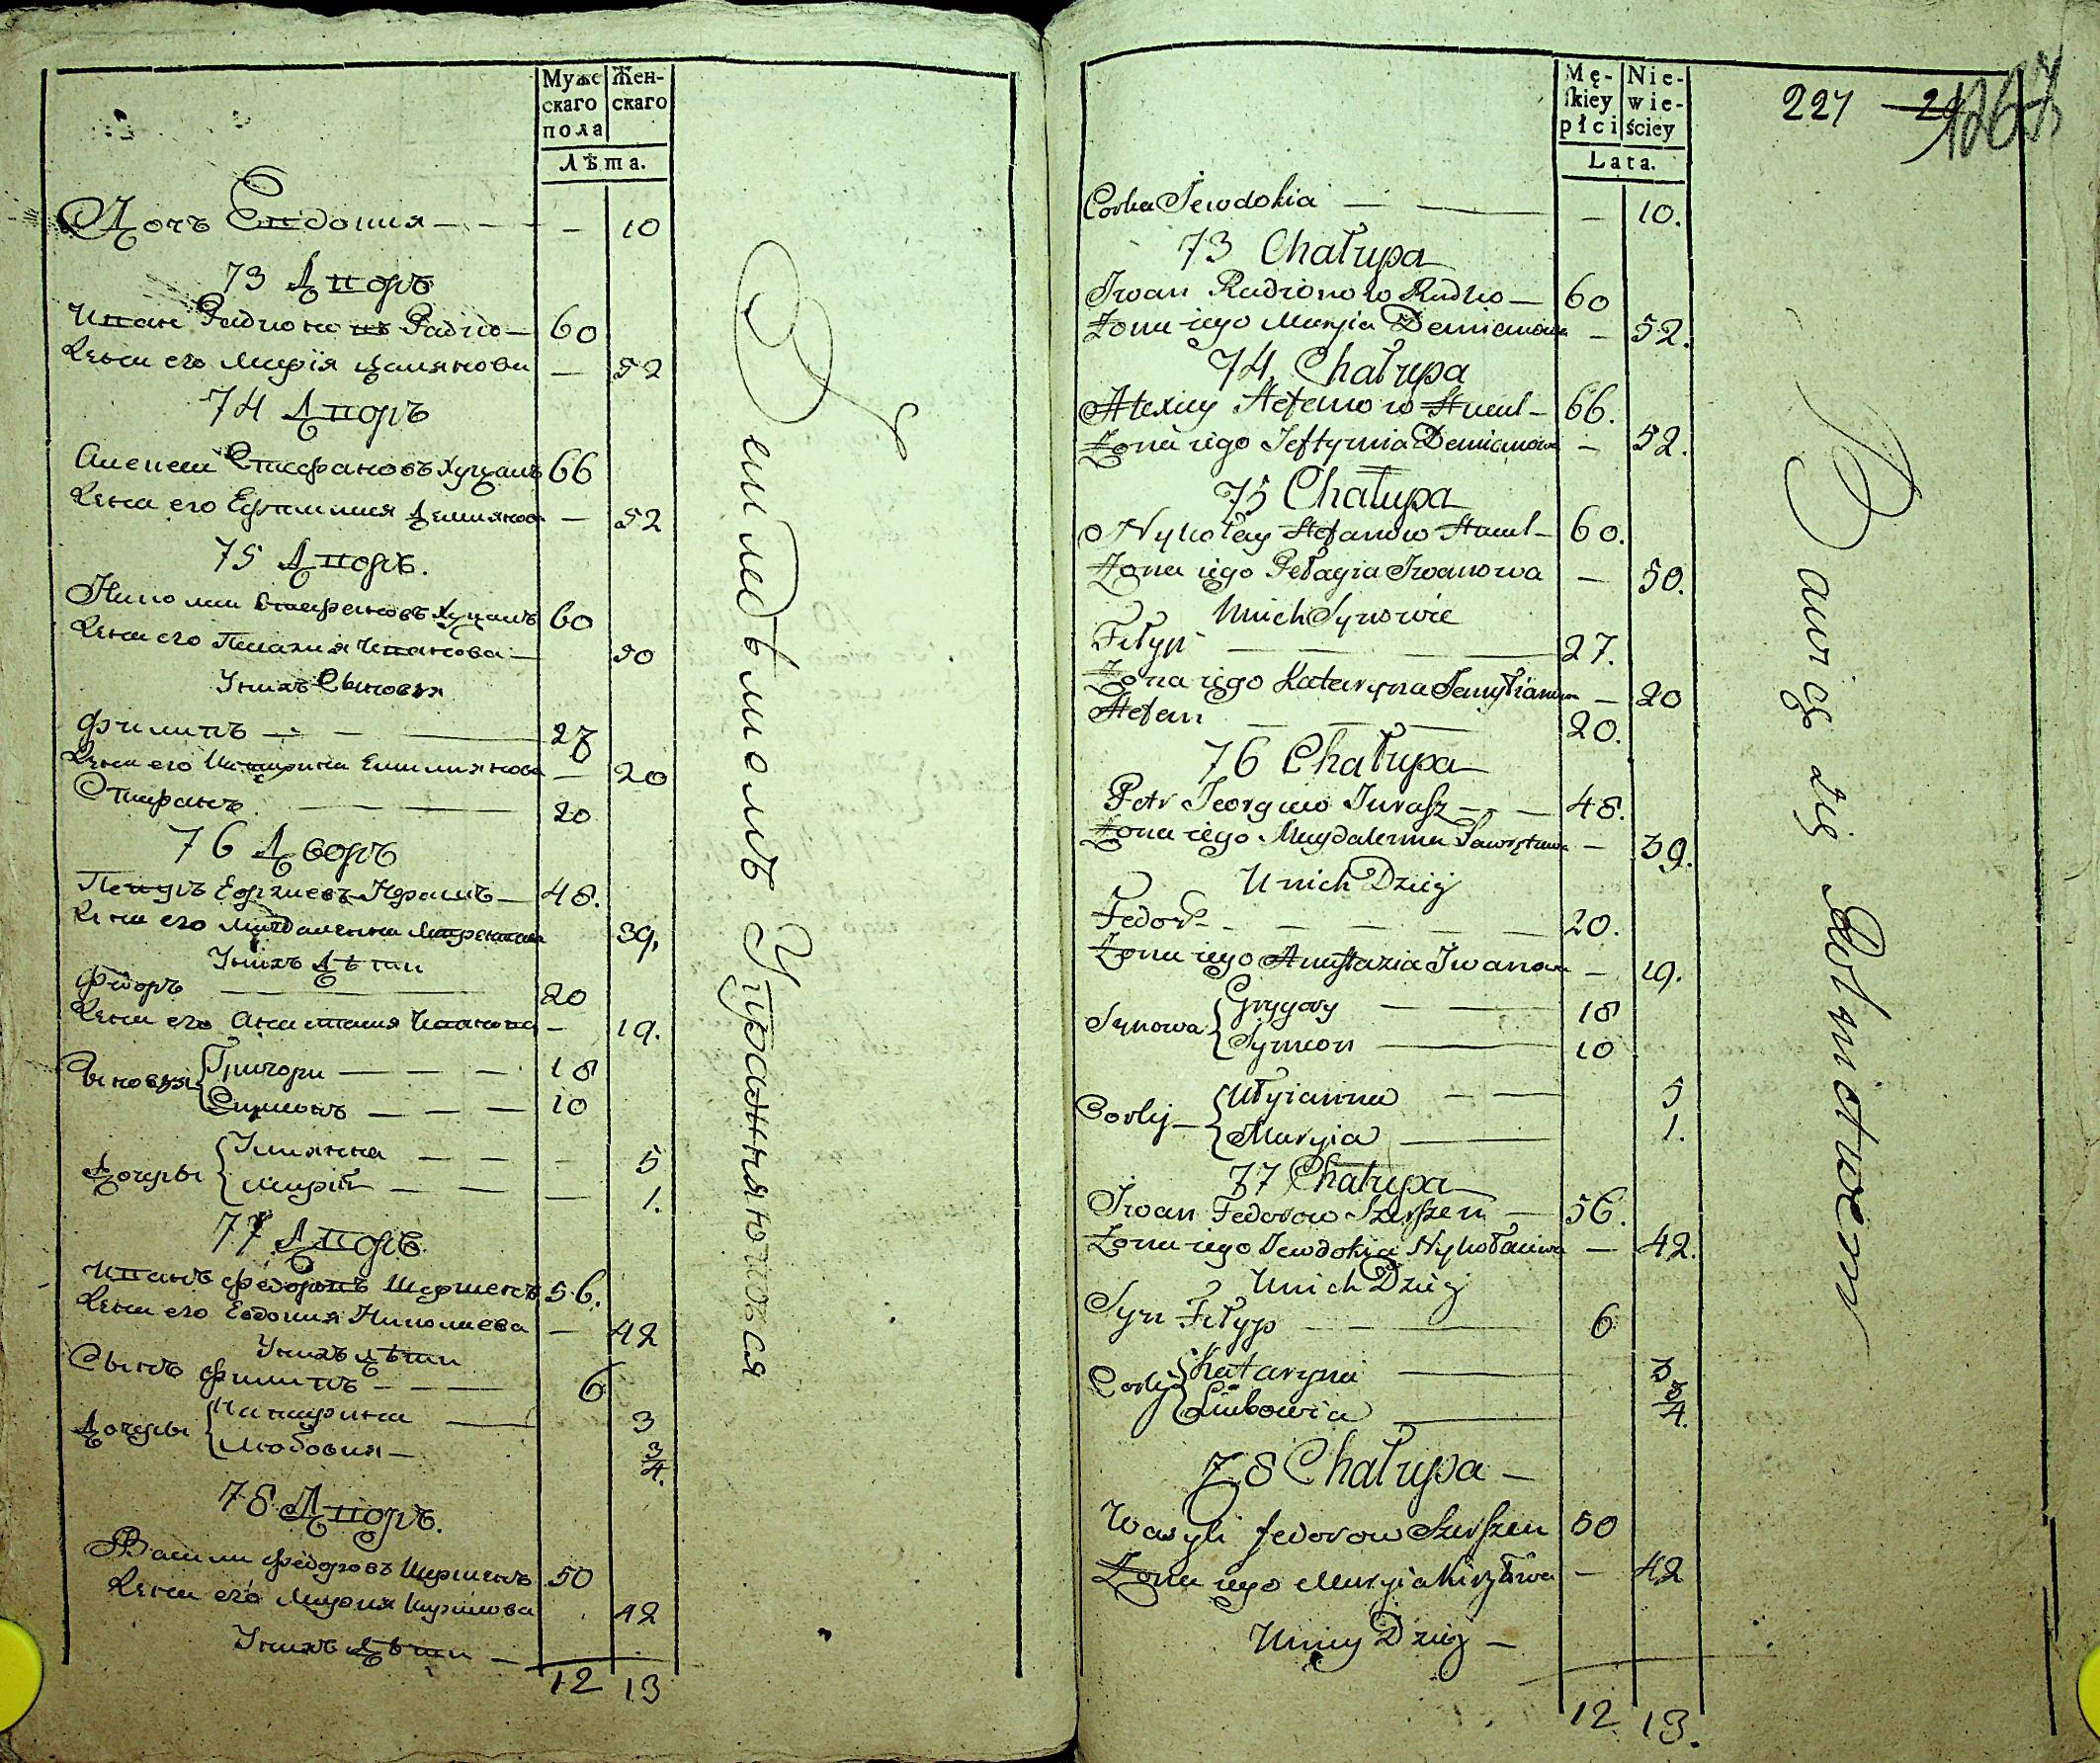 Муже
скаго
пола
Жен-
скаго
Лѣта.
Дочь Евдокия — — — 10
73 Дворъ
Иван Радионовъ Радко — 60
Жена его Мария Дамянова — 52
74 Дворъ
Алексей Стефановъ Хуцалъ 66
Жена его Ефтимия Демянова — 52
75 Дворъ.
Николай Стефановъ Хуцалъ 60
Жена его Пелагия Иванова — 50
У нихъ Сыновья
Филипъ — — 27
Жена его Катерина Емилиянова — 20
Стефанъ — — 20
76 Дворъ
Петръ Еоргиевъ Юрашъ — 48.
Жена его Магдаленна 39.
У нихъ Дѣти
Фёдоръ — 20
Жена его Анастасия Иванова — 19.
Сыновья { Григори — — — 18
Симионъ — — — 10
Дочеры { Улиянна — — — 5
Мария — — — 1.
77 Дворъ.
Иванъ Фёдоровъ Шершенъ 56.
Жена его Евдокия Николаева — 42
У нихъ дѣти
Сынъ Филипъ — — — 6
Дочеры { Катарина — 3
Любовия — 3/4.
78 Дворъ.
Васили Фёдоровъ Шершенъ 50
Жена его Мария Кирилова 42
У нихъ Дѣти —
12 13
земледѣлиемъ Упражняючиься
Mę-
skiey
płci
Nie-
wie-
ściey
Lata.
227
Corka Jewdokia — — — 10.
73 Chałupa
Jwan Radionow Radko — 60
Żona iego Maryia Demianowa — 52.
74. Chałupa
Alexiey Stefanow Hucul — 66.
Żona iego Jeftymia Demianowa — 52.
75 Chałupa
Nykołay Stefanow Hucul — 60.
Żona iego Pełagia Jwanowa — 50.
Unich Synowie
Fiłyp — — — 27.
Żona iego Kateryna Jemyłianowa — 20
Stefan — — — 20.
76 Chałupa
Petr Jeorgiew Jurasz — — 48.
Żona iego Magdalenna — 39.
Unich Dzieci
Fedor — — — — 20.
Żona iego Anastazia Jwanowa — 19.
Synowa { Grygory — — 18
Symeon — 10
Corky — { Ułyianna — — 5
Maryia — 1.
77 Chałupa
Jwan Fedorow Szerszen — 56.
Żona iego Jewdokia Nykołaiewa — 42.
Unich Dzieci
Syn Fiłyp — — 6
Corky { Kataryna — 3
Liubowia — 3/4.
78 Chałupa —
Wasyli Fedorow Szerszen 50
Żona iego Maryia Kiryłowa — 42
Unich Dzieci —
12 13.
Bawią się Rolnictwem